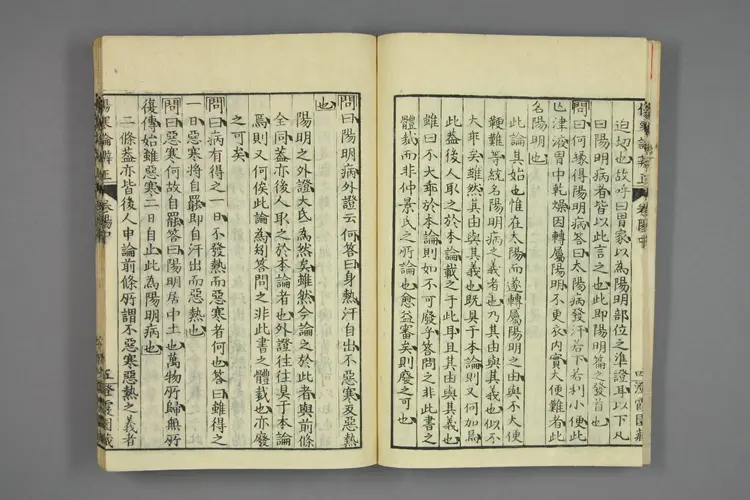 迫切也故呼曰胃家以為陽明部位之準證耳以下凡
曰陽明病者皆以此言之也此即陽明篇之發首也
問曰何緣得陽明病答曰太陽病發汗若下若利小便此
亡津液胃中乾燥因轉屬陽明不更衣內實大便難者此
名陽明也
此論其始也惟在太陽而遂轉屬陽明之由與不大便
鞕難等統名陽明病之義者也乃其由與其義也似不
大乖矣雖然其由與其義也既具于本論則又何如焉
此蓋後人取之於本論載之于此耳且其由與其義也
雖曰不大乖於本論則如不可廢乎答問之非此書之
體裁而非仲景氏之所論也愈益審矣則廢之可也
問曰陽明病外證云何答曰身熱汗自出不惡寒反惡熱
也
陽明之外證大氐為然矣雖然今論之於此者與前條
全同蓋亦後人取之於本論者也外證往往具于本論
焉則又何俟此論為矧答問之非此書之體裁也亦廢
之可矣
問曰病有得之一日不發熱而惡寒者何也答曰雖得之
一日惡寒將自罷即自汗出而惡熱也
問曰惡寒何故自罷答曰陽明居中土也萬物所歸無所
復傳始雖惡寒二日自止此為陽明病也
二條蓋亦皆後人申論前條所謂不惡寒惡熱之義者
傷寒論辨正 卷陽中